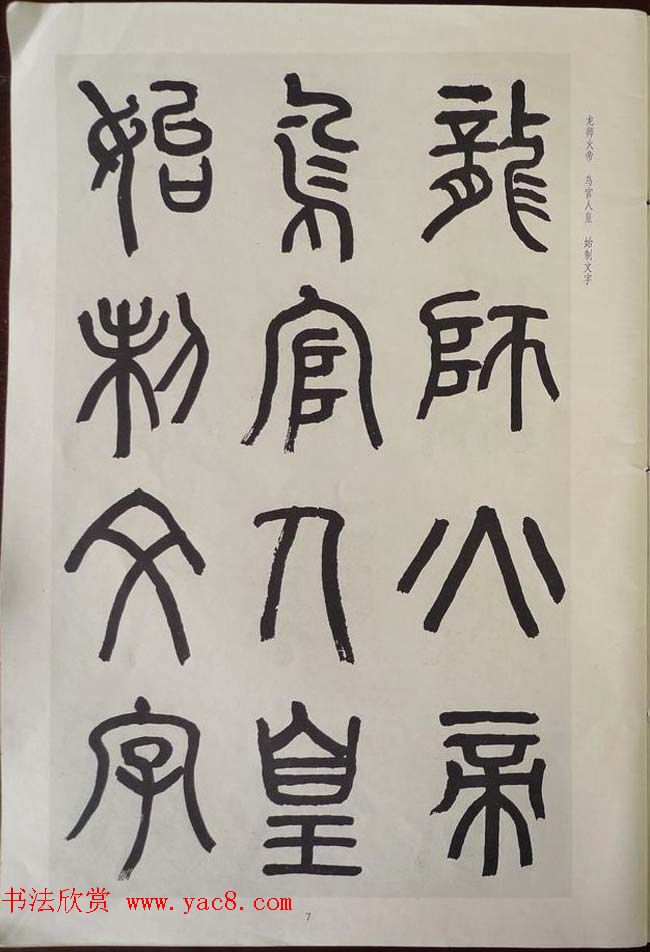 龙师火帝 鸟官人皇 始制文字
龍師火帝
鳥官人皇
始制文字
书法欣赏 www.yac8.com
7